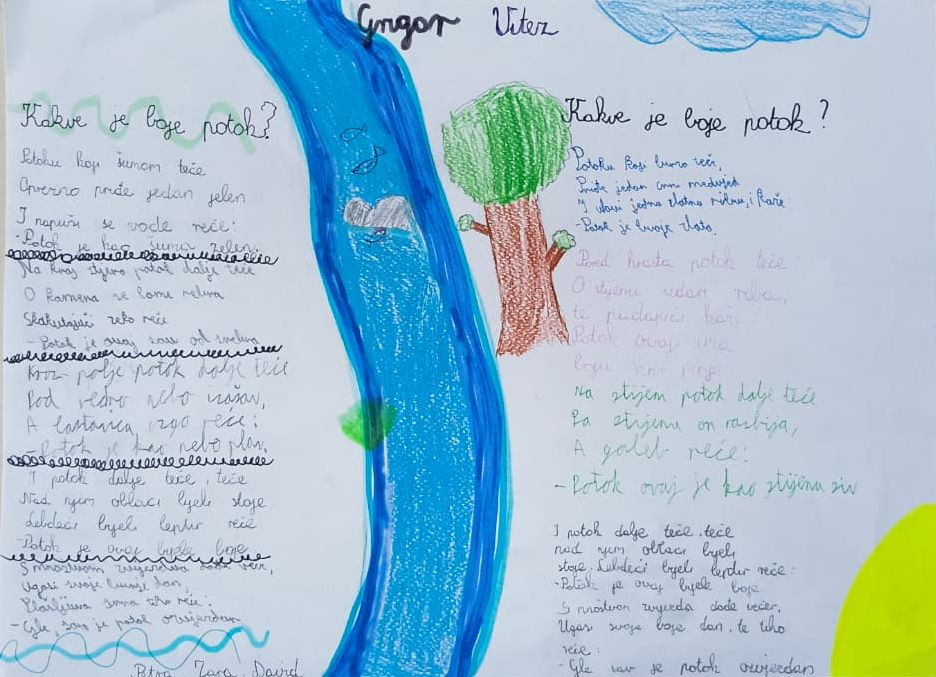 Grigor Vitez
Kakve je boje potok?
Potoku koji šumom teče
Oprezno priđe jedan jelen
I napivši se vode reče:
-Potok je kao šuma zelen.
Na kraj stijena potok dalje teče
O kamena se lome
Skakutajući zeko reče
- Potok je ovaj sav od srebra
Kroz polje potok dalje teče
Pod vedro nebo izašav,
A lastavica ozgo reče:
-Potok je kao nebo plav.
I potok dalje teče, teče
Nad njim oblaci bijeli stoje
Lebdeći bijeli leptir reče
-Potok je ovaj bijele boje
S mnoštvom zvijezda dođe veče,
Ugasi svoje boje dan,
Plašljiva srna tiho reče:
-Gle, sav je potok ozvjezdan
Petra, Zara, David
Kakve je boje potok?
Potoku koji burno teče,
Priđe jedan crni medvjed
I ulovi jednu zlatnu ribu, i kaže:
-Potok je boje zlata.
Pored hrasta potok teče:
O stijenu udari riba,
te padajući kaže:
Potok ovaj ima
boju kao moje
Na stijem potok dalje teče
Pa stijenu on razbija,
A galeb reče:
-Potok ovaj je kao stijena siv
I potok dalje teče, teče
nad njim oblaci bijeli
stoje, Lebdeći bijeli leptir reče:
-Potok je ovaj bijele boje
S mnoštvom zvijezda dođe večer,
Ugasi svoje boje dan, te tiho
reče:
-Gle sav je potok ozvjezdan